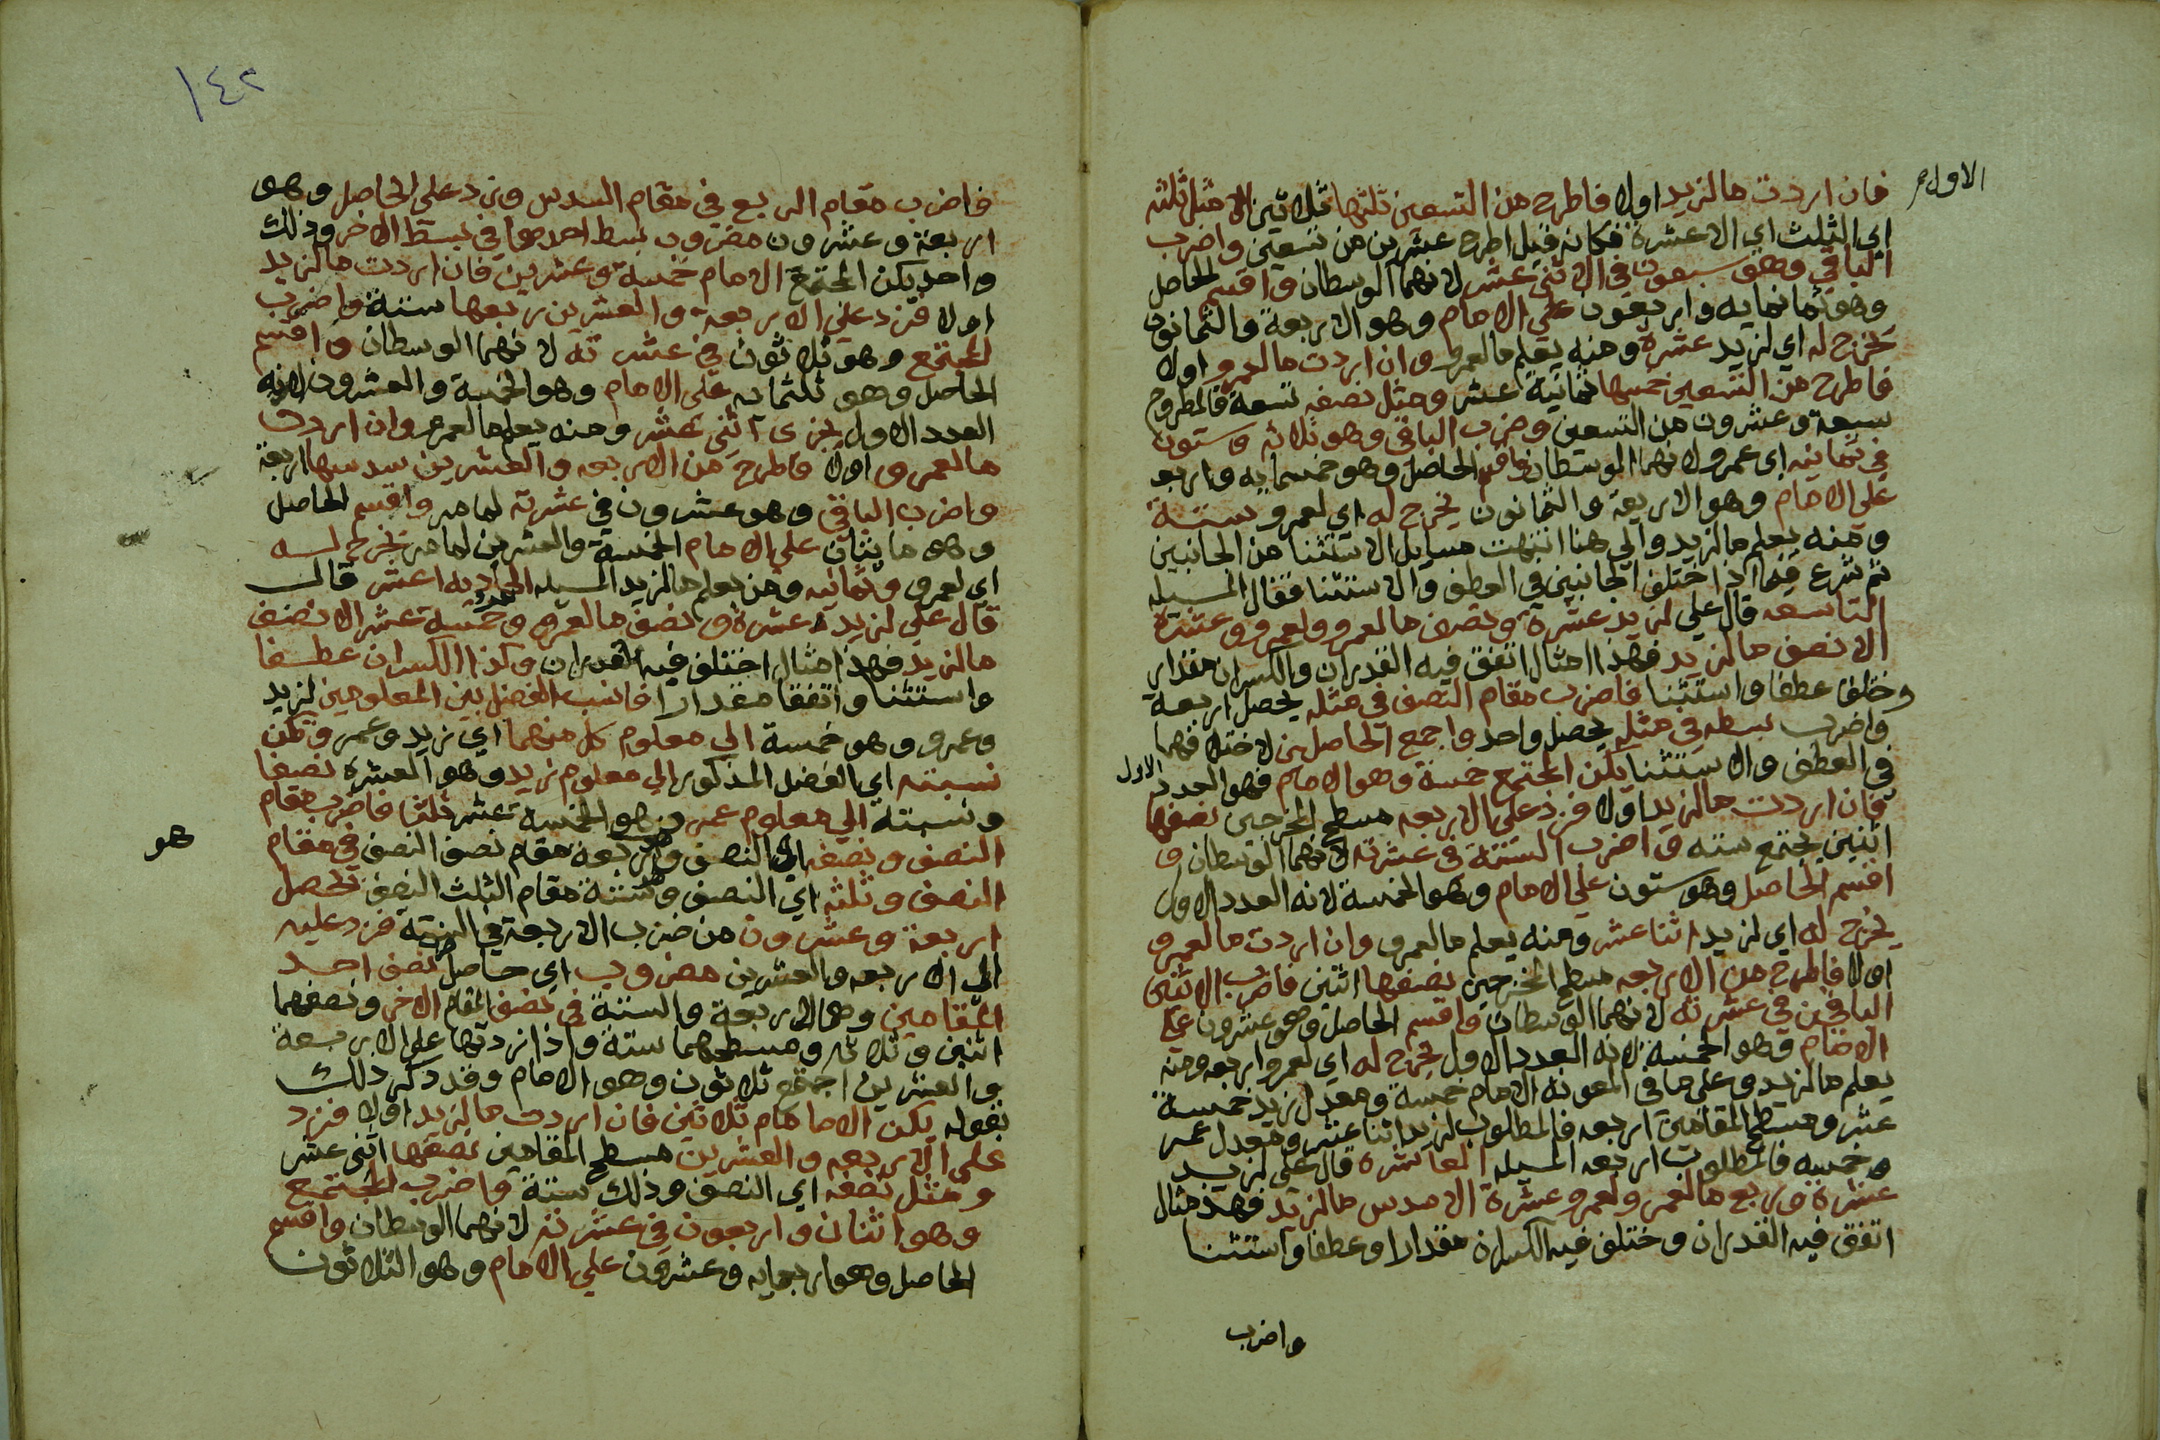 الاول م
فان اردت مالزيد اولا فاطرح من التسعين ثلثها ثلاثين الا مثل ثلثه
اي الثلث اي الا عشرة فكانه قيل اطرح عشرين من تسعين واضرب
الباقي وهو سبعون في الاثني عشر لانهما الوسطان واقسم الحاصل
وهو ثمانمايه واربعون علي الامام وهو الاربعة والثمانون
يخرج له اي لزيد عشرة ومنه يعلم مالعمرو وان اردت مالعمرو اولا
فاطرح من التسعين خمسها ثمانية عشر ومثل نصفه تسعة فالمطروح
سبعة وعشرون من التسعين وضرب الباقي وهو ثلاثه وستون
في ثمانيه اي عمرو لانهما الوسطان واقسم الحاصل وهو خمسمايه واربعه
علي الامام وهو الاربعة والثمانون يخرج له اي لعمرو ستة
ومنه يعلم مالزيد والي هنا انتهت مسايل الاستثنا من الجانبين
ثم شرع فيما اذا اختلف الجانبين في العطف والاستثنا فقال المسيله
التاسعه قال علي لزيد عشرة ونصف مالعمرو ولعمرو عشرة
الا نصف مالزيد فهذا امثال اتفق فيه القدران والكسران مقدارا
وختلفا عطفا واستثنا فاضرب مقام النصف في مثله يحصل اربعة
واضرب بسطه في مثله يحصل واحد واجمع الحاصلين لاختلافهما
في العطف والاستثنا يكن المجتمع خمسة وهو الامام فهو العدد الاول
فان اردت مالزيد اولا فزد علي الاربعه مسطح المخرجين نصفها
اثنين يجتمع سته واضرب الستة في عشرته لانهما الوسطان و
اقسم الحاصل وهو ستون علي الامام وهو الخمسة لانه العدد الاول
يخرج له اي لزيد اثنا عشر ومنه يعلم مالعمرو وان اردت مالعمرو
اولا فاطرح من الاربعه مسطح المخرجين نصفها اثنين فاضرب الاثنين
الباقين في عشرته لانهما الوسطان واقسم الحاصل وهو عشرون علي
الامام وهو الخمسة لانه العدد الاول يخرج له اي لعمرو اربعه ومنه
يعلم مالزيد وعلي ما في المعونه الامام خمسة ومعدل زيد خمسة
عشر ومسطح المقامين اربعه فالمطلوب لزيد اثنا عشر ومعدل عمر
وخمسه فالمطلوب اربعه المسيله العاشرة قال علي لزيد
عشرة وربع مالعمرو ولعمرو عشرة الا سدس مالزيد فهذ مثال
اتفق فيه القدران وختلف فيه الكسران مقدارا وعطفا واستثنا
واضرب
١٤٢
فاضرب مقام الربع في مقام السدس وزد علي الحاصل وهو
اربعة وعشرون مضروب بسط احدهما في بسط الاخر وذلك
واحد يكن المجتمع الامام خمسة وعشرين فان اردت مالزيد
اولا فزد علي الاربعة والعشرين ربعها ستة واضرب
المجتمع وهو ثلاثون في عشرته لانهما الوسطان واقسم
الحاصل وهو ثلثمايه علي الامام وهو الخمسة والعشرون لانه
العدد الاول يجزي اثني عشر ومنه يعلم مالعمرو وان اردت
مالعمرو اولا فاطرح من الاربعه والعشرين سدسها اربعة
واضرب الباقي وهو عشرون في عشرته لما مر واقسم الحاصل
وهو مايتان علي الامام الخمسة والعشرين لما مر يخرج له
اي لعمرو وثمانيه ومن يعلم مالزيد المسيله الحاديه اعشر قال
قال علي لزيد عشرة ونصف مالعمرو وخمسة عشر الا نصف
مالزيد فهذ امثال اختلف فيه القدران وكذا الكسران عطفا
واستثنا واتفقا مقدارا فانسب الفضل بين المعلومين لزيد
وعمرو وهو خمسة الي معلوم كل منهما اي زيد وعمرو تكن
نسبته اي الفضل المذكور الي معلوم زيد وهو العشرة نصفا
ونسبته الي معلوم عمرو وهو الخمسة عشر ثلثا فاضرب مقام
النصف ونصفه اي النصف وهو اربعة مقام نصف النصف في مقام
هو
النصف وثلثه اي النصف وهو ستة مقام الثلث النصف يحصل
اربعة وعشرون من ضرب الاربعة في الستة فزد عليه
اي الاربعه والعشرين مضروب اي حاصل نصف احد
المقامين وهما الاربعة والستة في نصف المقام الاخر ونصفهما
اثنين وثلاثه ومسطحهما ستة واذا زدتها علي الاربعة
والعشرين اجتمع ثلاثون وهو الامام وقد ذكر ذلك
بقوله يكن الاما مام ثلاثين فان اردت مالزيد اولا فزد
علي الاربعه والعشرين مسطح المقامين نصفها اثني عشر
ومثل نصفه اي النصف وذلك ستة واضرب المجتمع
وهو اثنان واربعون في عشرته لانهما الوسطان واقسم
الحاصل وهو اربعمايه وعشرون علي الامام وهو الثلاثون